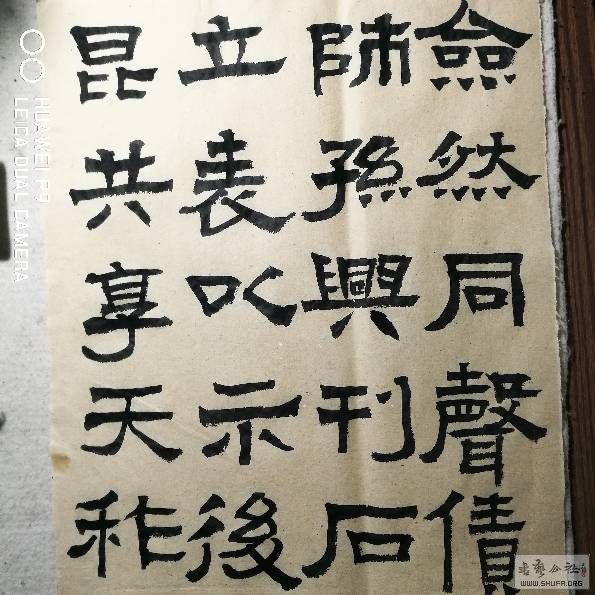 僉然同聲債
師孫興刊石
立表以示後
昆共享天祚
HUAWEI P9
LEICA DUAL CAMERA
书艺公社
WWW.SHUFA.ORG